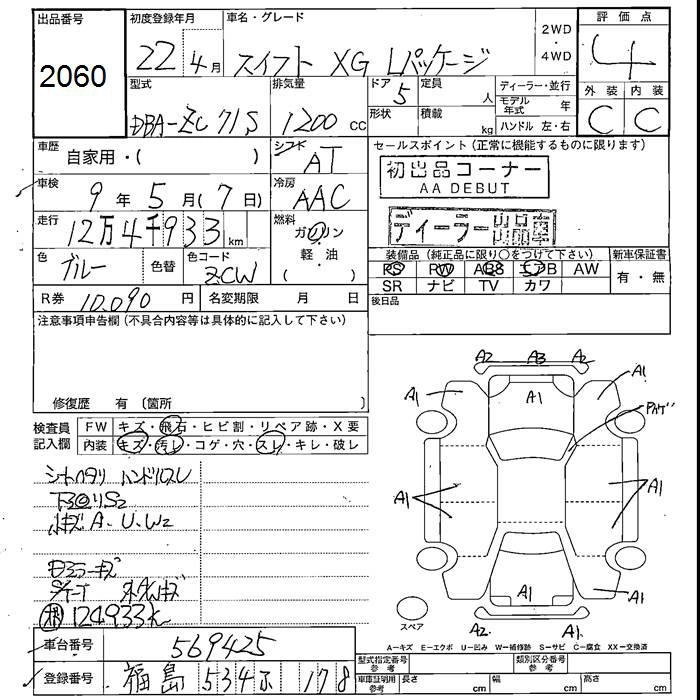 出品番号 初度登録年月 車名・グレード 2WD・4WD 評価点
2060 22年4月 スイフト XG Lパッケージ 4
型式 排気量 ドア 定員 ディーラー・並行 外装 内装
DBA-ZC71S 1200cc 5 人 モデル年式 年 C C
形状 積載 kg ハンドル 左・右
車歴 自家用・( ) シフト AT セールスポイント(正常に機能するものに限ります)
初出品コーナー
AA DEBUT
車検 9年5月(7日) 冷房 AAC
ディーラー出品車
走行 12万4千933km 燃料 ガソリン
軽・油
( )
色 ブルー 色替 色コード ZCW
装備品(純正品に限り○をつけて下さい) 新車保証書
PS PW ABS エアB AW 有・無
SR ナビ TV カワ
R券 10,090円 名変期限 月 日 後日品
注意事項申告欄(不具合内容等は具体的に記入して下さい)
修復歴 有〔箇所 〕
検査員記入欄 FW キズ・飛石・ヒビ割・リペア跡・X要
内装 キズ・汚レ・コゲ・穴・スレ・キレ・破レ
シートヘタリ ハンドルスレ
下回りS2
小キズA・U・W2
ミラーキズ
124933k
A2 A3 A2
A1 A1 A1
A1 A1
A1 A1
A2 A1
スペア
A=キズ E=エクボ U=凹み W=補修跡 S=サビ C=腐食 XX=交換済
車台番号 569425
登録番号 福島 534 178
型式指定番号 参考 類別区分番号 参考
車庫証明用 参考 長さ cm 幅 cm 高さ cm